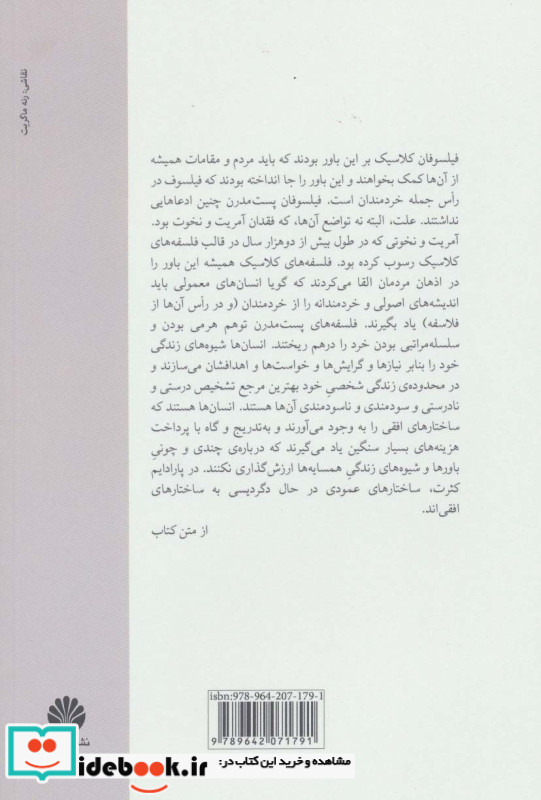 نقاشی: رنه ماگریت
فیلسوفان کلاسیک بر این باور بودند که باید مردم و مقامات همیشه
از آن‌ها کمک بخواهند و این باور را جا انداخته بودند که فیلسوف در
رأس جمله خردمندان است. فیلسوفان پست‌مدرن چنین ادعاهایی
نداشتند. علت، البته نه تواضع آن‌ها، که فقدان آمریت و نخوت بود.
آمریت و نخوتی که در طول بیش از دوهزار سال در قالب فلسفه‌های
کلاسیک رسوب کرده بود. فلسفه‌های کلاسیک همیشه این باور را
در اذهان مردمان القا می‌کردند که گویا انسان‌های معمولی باید
اندیشه‌های اصولی و خردمندانه را از خردمندان (و در رأس آن‌ها از
فلاسفه) یاد بگیرند. فلسفه‌های پست‌مدرن توهم هرمی بودن و
سلسله‌مراتبی بودن خرد را درهم ریختند. انسان‌ها شیوه‌های زندگی
خود را بنابر نیازها و گرایش‌ها و خواست‌ها و اهدافشان می‌سازند و
در محدوده‌ی زندگی شخصیِ خود بهترین مرجع تشخیص درستی و
نادرستی و سودمندی و ناسودمندی آن‌ها هستند. انسان‌ها هستند که
ساختارهای افقی را به وجود می‌آورند و به‌تدریج و گاه با پرداخت
هزینه‌های بسیار سنگین یاد می‌گیرند که درباره‌ی چندی و چونیِ
باورها و شیوه‌های زندگیِ همسایه‌ها ارزش‌گذاری نکنند. در پارادایم
کثرت، ساختارهای عمودی در حال دگردیسی به ساختارهای
افقی‌اند.
از متن کتاب
isbn: 978-964-207-179-1
9 789642 071791
نشر
مشاهده و خرید این کتاب در:
idebook.ir